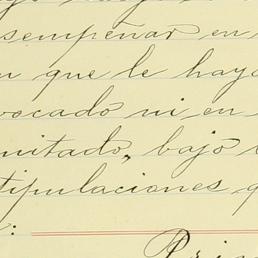 sempeñar en
que le hayo
vocado ni en
mitado, bajo
tipulaciones q
:
Prin